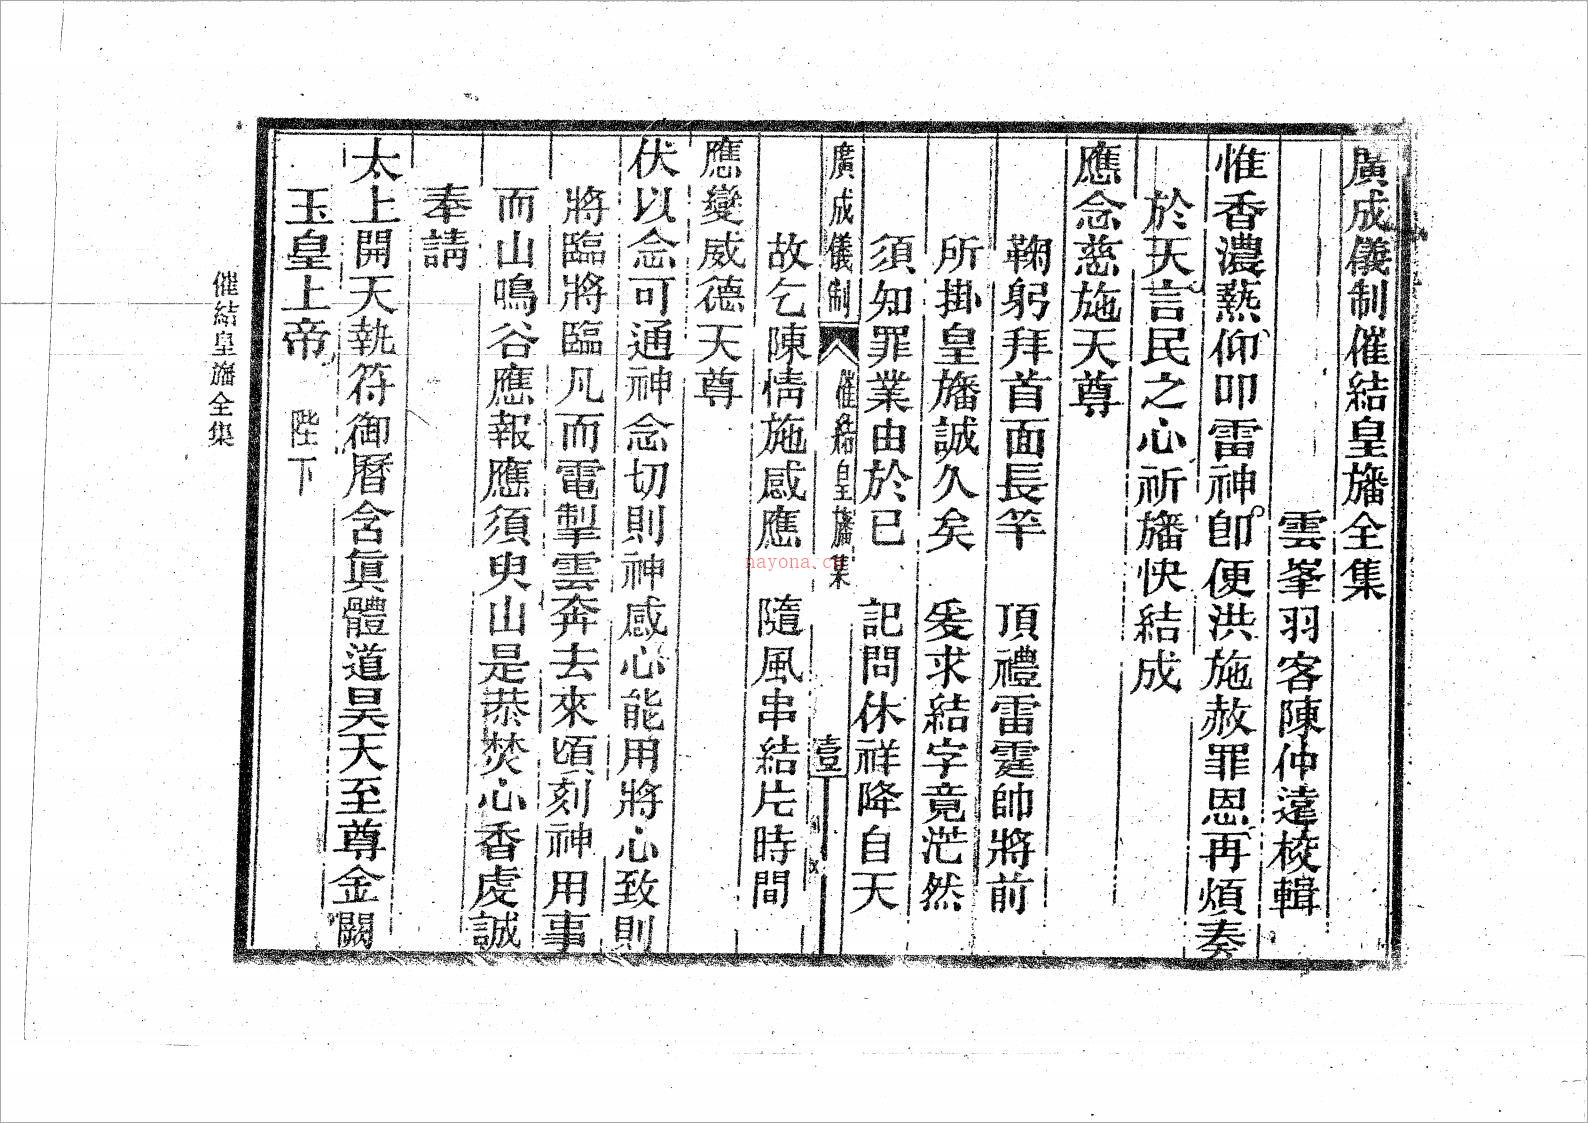 廣成儀制催結皇旛全集
雲峯羽客陳仲遠校輯
惟香濃爇仰叩雷神卽便洪施赦罪恩再煩奏
於天言民之心祈旛快結成
應念慈施天尊
鞠躬拜首面長竿　頂禮雷霆帥將前
所掛皇旛誠久矣　爰求結字竟茫然
須知罪業由於已　記問休祥降自天
故乞陳情施感應　隨風串結片時間
廣成儀制　催結皇旛集　壹
應變威德天尊
伏以念可通神念切則神感心能用將心致則
將臨將臨凡而電掣雲奔去來頃刻神用事
而山鳴谷應報應須臾山是恭焚心香虔誠
奉請
太上開天執符御曆含眞體道昊天至尊金闕
玉皇上帝　陛下
催結皇旛全集
nayona.cn